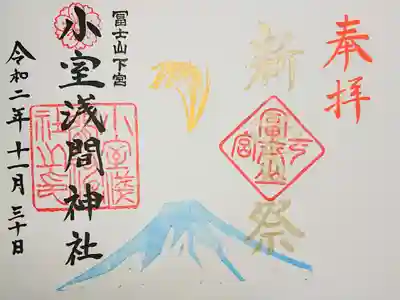 奉拝
新
祭
冨士山
下宮
冨士山下宮
小室浅間神社
令和二年十一月三十日